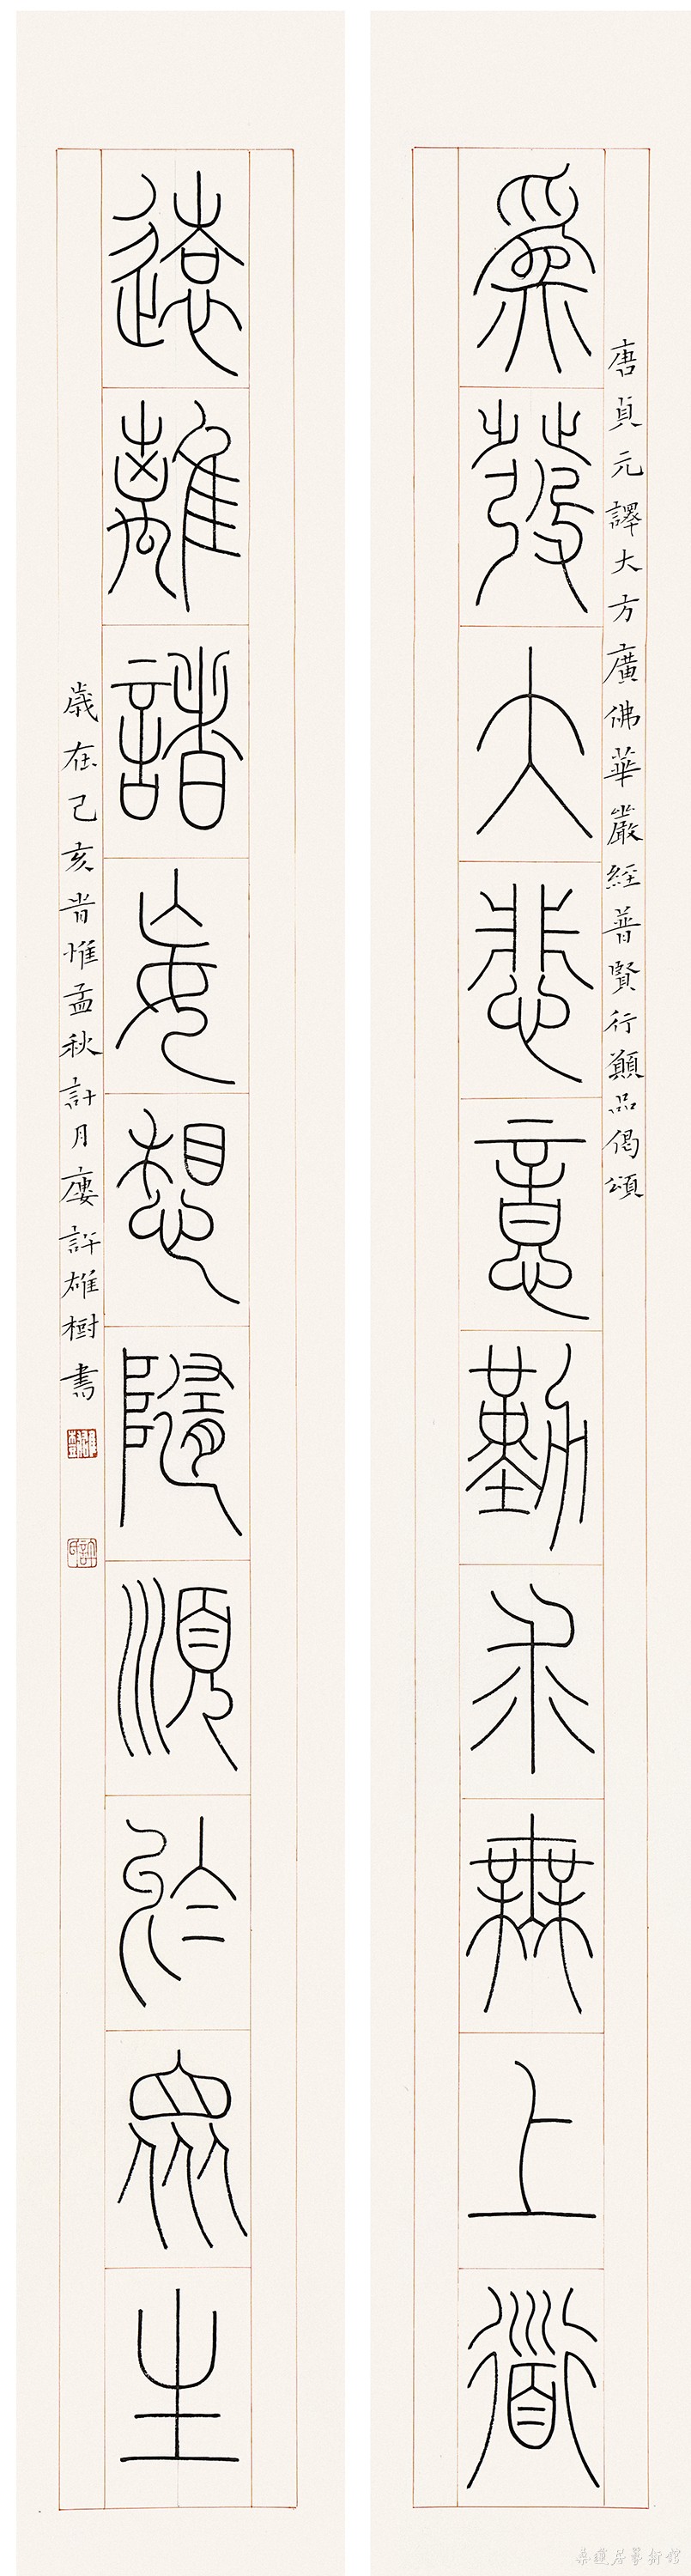 唐貞元譯大方廣佛華嚴經普賢行願品偈頌
爲發大悲意勤求無上道
遠離諸妄想隨順於眾生
歲在己亥旹惟孟秋計月廔許雄樹書